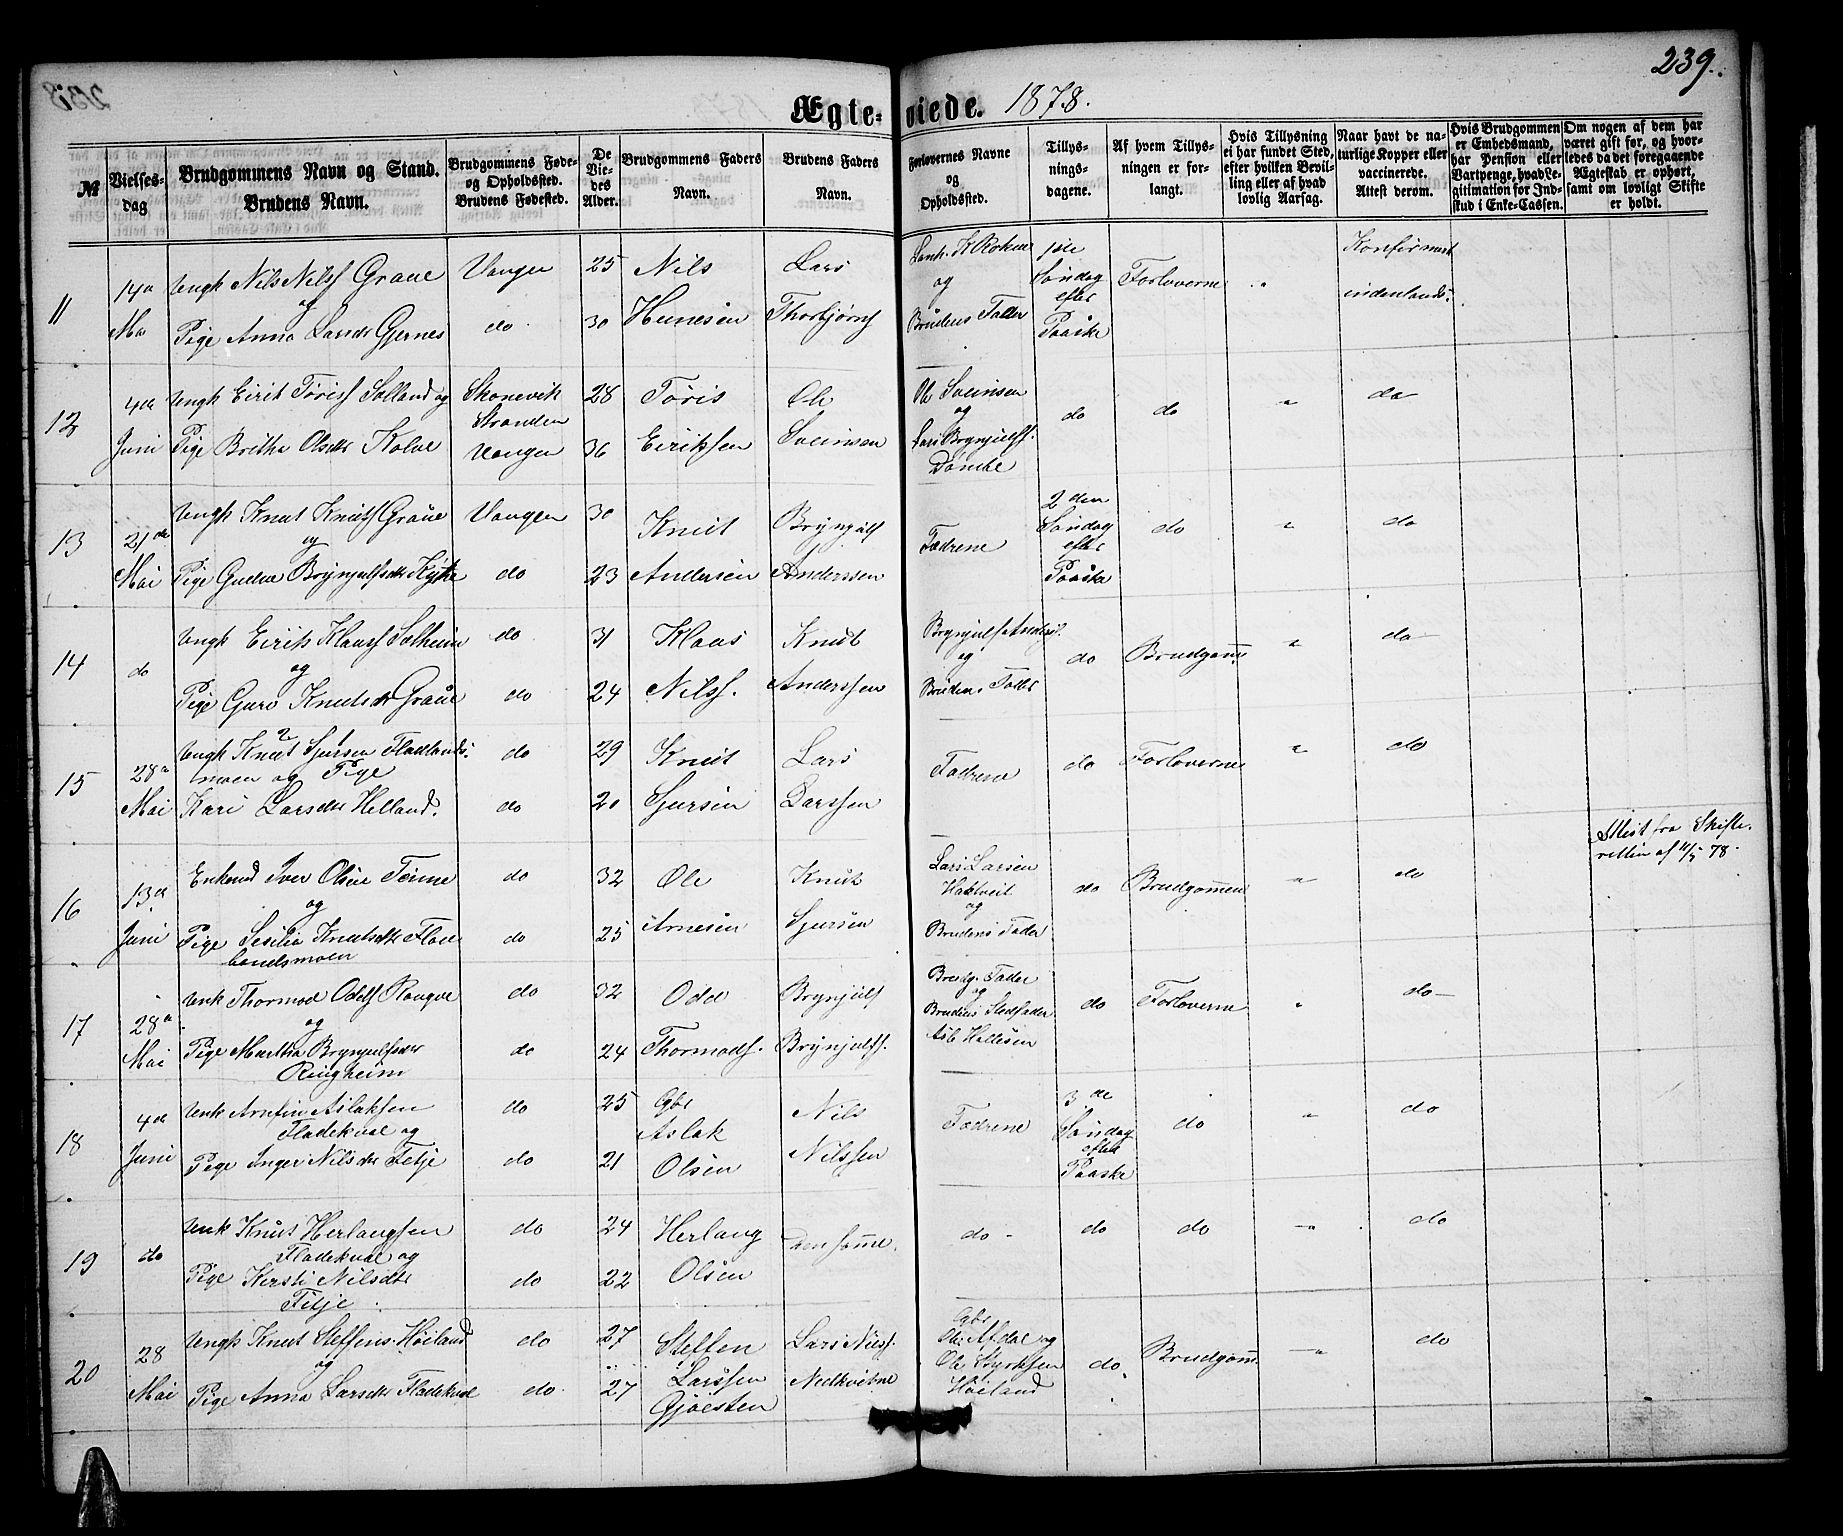 239.
Ægteviede. 1878.
№
Vielses-
dag
Brudgommens Navn og Stand.
Brudens Navn.
Brudgommens Føde-
og Opholdssted.
Brudens Fødested.
De
Vie-
des
Alder.
Brudgommens Faders
Navn.
Brudens Faders
Navn.
Forlovernes Navne
og
Opholdssted.
Tillys-
nings-
dagene.
Af hvem Tillys-
ningen er for-
langt.
Hvis Tillysning
ei har fundet Sted,
efter hvilken Bevil-
ling eller af hvad
lovlig Aarsag.
Naar havt de na-
turlige Kopper eller
vaccinerede.
Attest derom.
Hvis Brudgommen
er Embedsmand,
har Pension eller
Vartpenge, hvad Le-
gitimation for Ind-
skud i Enke-Cassen.
Om nogen af dem har
været gift før, og hvor-
ledes da det foregaaende
Ægteskab er ophørt,
samt om lovligt Skifte
er holdt.
11
14a
Ma
Ungk Nils Nilss Graue
og
Pige Anna Larsdr Gjernes
Vangen
do
25
30
Nils
Lars
Thorbjørns
og
Brudens Fader
1ste
Søndag
efter
Paaske
Forloverne
"
Konfirmert
indenlands.
12
4de
Juni
Ungk Eirik Tøriss Solland og
Pige Britha Olsdtr Kolve
Skonevik
Stranden
Vangen
28
36
Tøris
Eiriksen
Ole
Sveinsen
Ole Sveinsen
og
Lars Brynjulfs.
do
do
"
do
13
21de
Mai
Ungk Knut Knuts Graue
og
Pige Gudve Brynjulfsdtr Kyte
Vangen
do
30
23
Knut
Andersen
Brynjulf
Anderssen
Fædrene
2den
Søndag
efter
Paaske
do
"
do
14
do
Ungk Eirik Klaass Sølheim
og
Pige Guro Knutsdr Graue
do
do
31
24
Klaas
Nilss.
Knut
Anderssen
Brynjulf Anders.
og
Brudens Fader
do
Brudgomm.
"
do
15
28a
Mai
Ungk Knut Sjursen Fladlands-
moen og Pige
Kari Larsdtr Helland.
do
do
29
20
Knut
Sjursen
Lars
Larssen
Fædrene
do
Forloverne
"
do
16
13de
Juni
Enkmd Iver Olsen Tenne
og
Pige Sesilia Knutsdtr Flad
landsmoen
do
do
32
25
Ole
Arnesen
Knut
Sjursen
Lars Larsen
og
Brudens Fader
do
Brudgommen
"
do
Attest fra Skifte.
retten af 11/5 78.
17
28a
Mai
Unk Thormod Odds Rongve
og
Pige Martha Brynjulfsdtr
Ringheim
do
do
32
24
Odd
Thormods.
Brynjulf
Brynjulfs.
Brudg. Fader
og
Brudens Stedfader
do
Forloverne
"
do
18
4de
Juni
Unk Arnfin Aslaksen
Fladekval og
Pige Inger Nilsdtr Fitje
do
do
25
21
Gbr
Aslak
Olsen
Nils
Nilssen
Fædrene
3de
Søndag
efter
Paaske
do
"
do
19
do
Unk Knut Herlaugsen
Fladekval og
Pige Kirsti Nilsdtr
Fitje
do
do
24
22
Herlaug
Olsen
Den samme.
do
do
do
"
do
20
28
Mai
Ungk Knut Steffens. Høiland
og
Pige Anna Larsdtr Fladekval
do
do
27
27
Steffen
Larssen
Gjøesten
Lars Nilss.
Nedkvitne
Gbr
Ole Afdal og
Ole Styrksen
Høiland
do
Brudgomm.
"
do